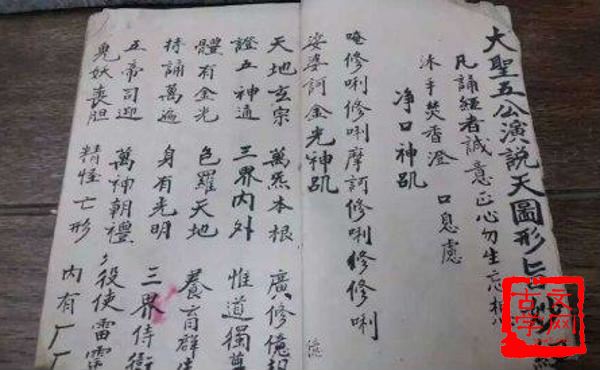 大聖五公演說天圖形
凡誦經者誠意正心勿生忘想
沐手焚香澄 口息慮
净口神咒
唵修唎修唎摩訶修唎修修唎
娑婆訶金光神咒
天地玄宗 萬炁本根 廣修億劫
證五神通 三界内外 惟道獨尊
體有金光 色羅天地 養育群生
持誦萬遍 身有光明 三界侍衛
五帝司迎 萬神朝禮 役使雷霆
鬼妖丧胆 精怪亡形 内有
古文字网